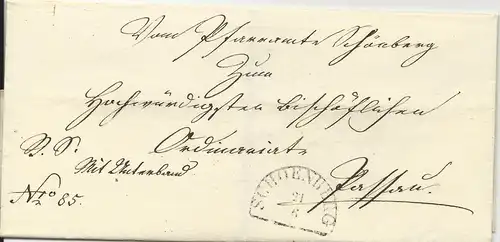 Vom Pfarramte Schönberg
Zum
Hochwürdigsten Bischöflichen
Ordinariate
R. S.
Mit Unterband
Passau.
Nro 85.
SCHOENBERG
21
6